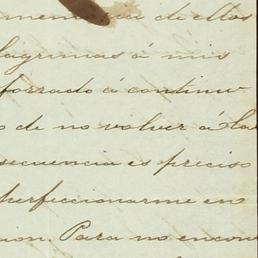 de ellos
lagrimas á mis
forzado á continu
o de no volver á
secuencia es preciso
perfeccionarme en
ion. Para no encon